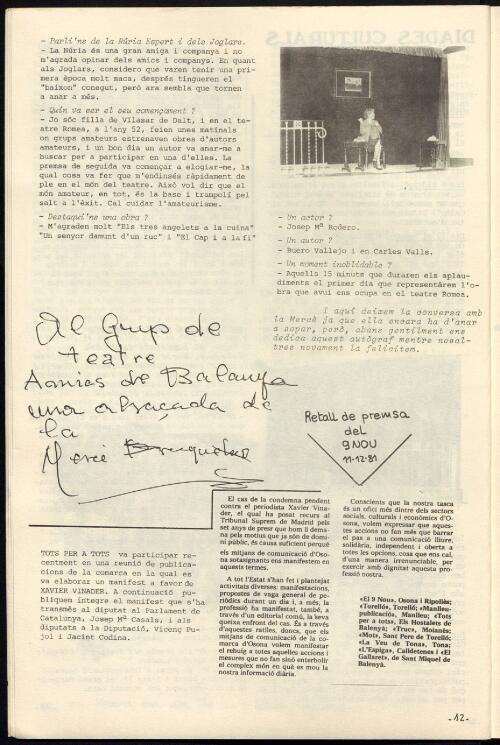 - Parli'ns de la Núria Espert i dels Joglars.
- La Núria és una gran amiga i companya i no
m'agrada opinar dels amics i companys. En quant
als Joglars, considero que varen tenir una pri-
mera època molt maca, després tingueren el
"baixon" conegut, però ara sembla que tornen
a anar a més.
- Quin va ser el seu començament ?
- Jo sóc filla de Vilasar de Dalt, i en el te-
atre Romea, a l'any 52, feien unes matinals
on grups amateurs estrenaven obres d'autors
amateurs, i un bon dia un autor va anar-me a
buscar per a participar en una d'elles. La
premsa de seguida va començar a elogiar-me, la
qual cosa va fer que m'endinsés ràpidament de
ple en el món del teatre. Això vol dir que el
món amateur, en tot, és la base i trampolí pel
salt a l'èxit. Cal cuidar l'amateurisme.
- Destaqui'ne una obra ?
- M'agraden molt "Els tres angelets a la cuina"
"Un senyor damunt d'un ruc" i "El Cap i a la fi"
- Un actor ?
- Josep Mª Rodero.
- Un autor ?
- Buero Vallejo i en Carles Valls.
- Un moment inoblidable ?
- Aquells 15 minuts que duraren els aplau-
diments el primer dia que representàrem l'o-
bra que avui ens ocupa en el teatre Romea.
I aquí deixem la conversa amb
la Mercè ja que ella encara ha d'anar
a sopar, però, abans gentilment ens
dedica aquest autògraf mentre nosal-
tres novament la felicitem.
Al Grup de
teatre
Amics de Balanya
una abraçada de
la
Mercè Bruquetas
Retall de premsa
del
9 NOU
11-12-81
TOTS PER A TOTS va participar re-
centment en una reunió de publica-
cions de la comarca en la qual es
va elaborar un manifest a favor de
XAVIER VINADER. A continuació pu-
bliquem íntegre el manifest que s'ha
transmès al diputat al Parlament de
Catalunya, Josep Mª Casals, i als
diputats a la Diputació, Vicenç Pu-
jol i Jacint Codina.
El cas de la condemna pendent
contra el periodista Xavier Vina-
der, el qual ha posat recurs al
Tribunal Suprem de Madrid pels
set anys de presó que hom li dema-
na pels motius que ja són de domi-
ni públic, és causa suficient perquè
els mitjans de comunicació d'Oso-
na sotasignants ens manifestem en
aquests termes.
A tot l'Estat s'han fet i plantejat
activitats diverses: manifestacions,
propostes de vaga general de pe-
riòdics durant un dia i, a més, la
professió ha manifestat, també, a
través d'un editorial comú, la seva
queixa enfront del cas. És a través
d'aquestes ratlles, doncs, que els
mitjans de comunicació de la co-
marca d'Osona volem manifestar
el rebuig a totes aquelles accions i
mesures que no fan sinó enterbolir
el complex món en què es mou la
nostra informació diària.
Conscients que la nostra tasca
és un ofici més dintre dels sectors
socials, culturals i econòmics d'O-
sona, volem expressar que aques-
tes accions no fan més que barrar
el pas a una comunicació lliure,
solidària, independent i oberta a
totes les opcions, cosa que ens cal,
d'una manera irrenunciable, per
exercir amb dignitat aquesta pro-
fessió nostra.
«El 9 Nou», Osona i Ripollès;
«Torelló», Torelló; «Manlleu»
publicación, Manlleu; «Tots
per a tots», Els Hostalets de
Balenyà; «Truc», Moianès;
«Mot», Sant Pere de Torelló;
«La Veu de Tona», Tona;
«L'Espiga», Calldetenes i «El
Gallaret», de Sant Miquel de
Balenyà.
-12-